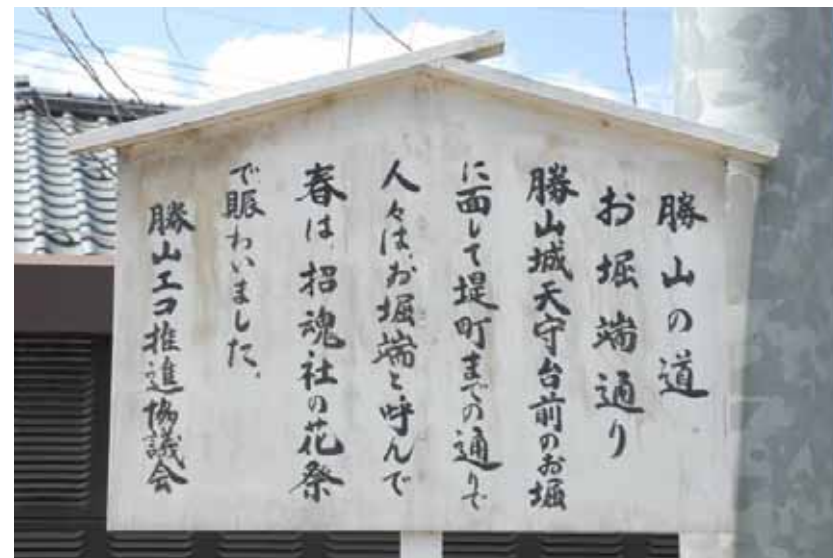 勝山の道
お堀端通り
勝山城天守台前のお堀
に面して堤町までの通りで
人々は、お堀端と呼んで
春は、招魂社の花祭
で賑わいました。
勝山エコ推進協議会